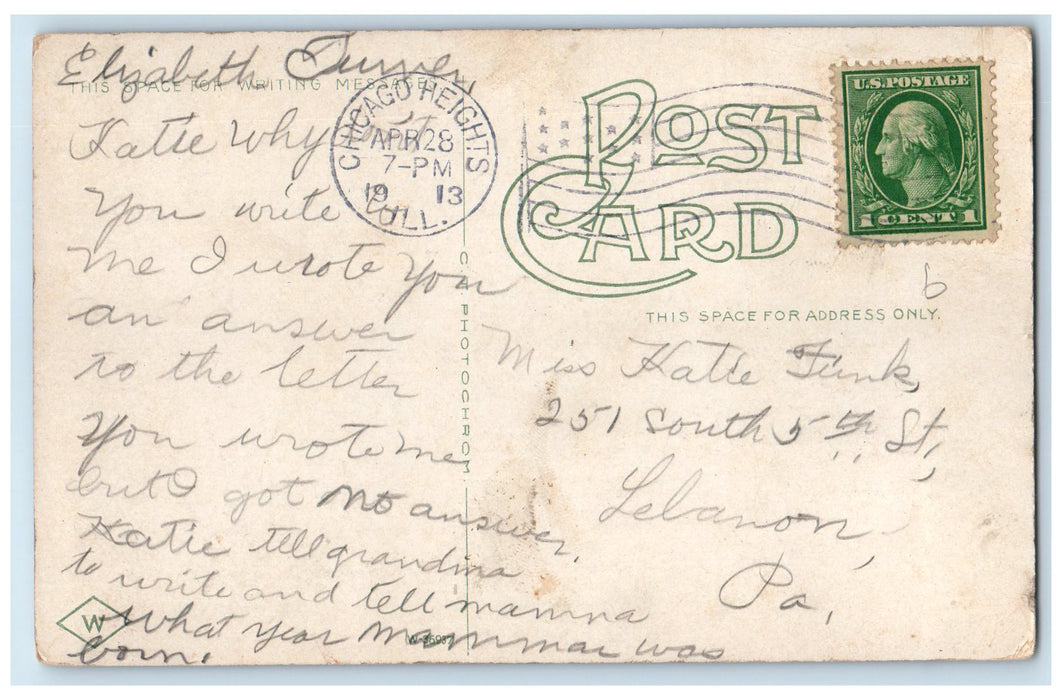 Elizabeth Turner
THIS SPACE FOR WRITING MESSAGES
Katie Why
You write
me I wrote You
an answer
to the letter
You wrote me
but I got no answer.
Katie tell grandma
to write and tell mamma
what year mammai was
born.
CHICAGO HEIGHTS
APR 28
7-PM
19 13
ILL.
POST
CARD
U.S. POSTAGE
1 CENT 1
6
THIS SPACE FOR ADDRESS ONLY.
Miss Katie Funk,
251 South 5th St,
Lebanon,
Pa,
PHOTOCHROM.
W